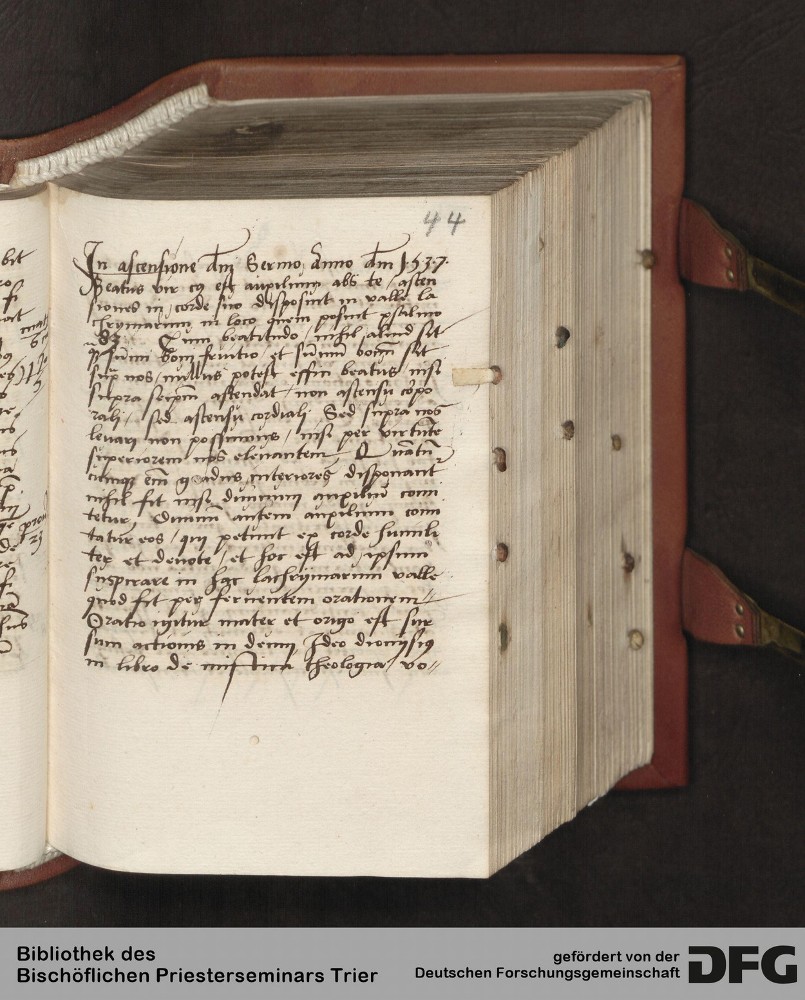 44
In ascensione dñi Sermo, Anno dñi 1537.
Beatus vir cuius est auxilium abs te, ascen
siones in corde suo disposuit in valle la
chrymarum in loco quem posuit psalmo
83. Cum beatitudo nihil aliud sit
summi boni fruitio, et sũmũ bonũ sit
supra nos, nullus potest effici beatus nisi
supra seipsũ ascendat, non ascensu corpo
rali, sed ascensu cordiali. Sed supra nos
levari non possumus, nisi per virtutẽ
superiorem nos elevantem. Quantũ
cumque enĩ gradus interiores disponant
nihil fit nisi divinum auxiliũ comi
tetur. Divinũ autem auxilium comi
tatur eos, qui petunt ex corde humili
ter et devote, et hoc est ad ipsum
suspirare in hac lachrymarum valle
quod fit per ferventem orationem
Oratio igitur mater et origo est sur
sum actionis in deum, Ideo dionisius
in libro de mistica theologia vo
Bibliothek des
Bischöflichen Priesterseminars Trier
gefördert von der
Deutschen Forschungsgemeinschaft
DFG